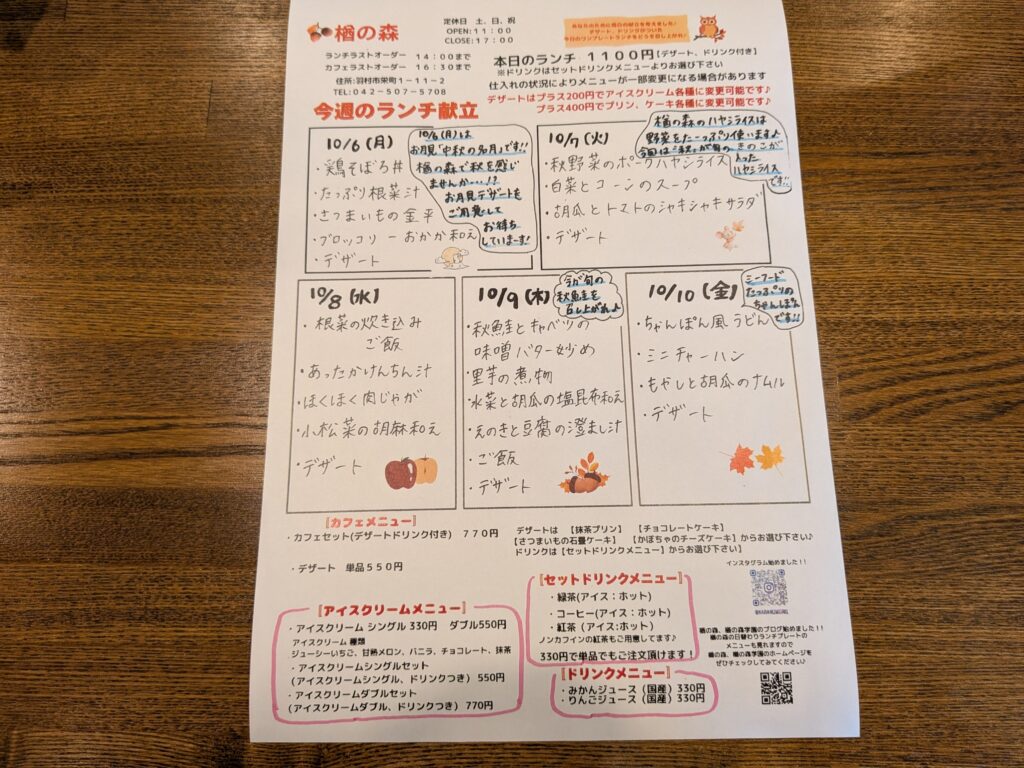 楢の森
定休日 土、日、祝
OPEN:11:00
CLOSE:17:00
ランチラストオーダー 14:00まで
カフェラストオーダー 16:30まで
住所:羽村市栄町1-11-2
TEL:042-507-5708
今週のランチ献立
本日のランチ 1100円【デザート、ドリンク付き】
※ドリンクはセットドリンクメニューよりお選び下さい
仕入れの状況によりメニューが一部変更になる場合があります
デザートはプラス200円でアイスクリーム各種に変更可能です♪
プラス400円でプリン、ケーキ各種に変更可能です♪
10/6(月)
・鶏そぼろ丼
・たっぷり根菜汁
・さつまいもの金平
・ブロッコリーおかか和え
・デザート
10/6(月)は
お月見「中秋の名月」です!!
楢の森で秋を感じ
ませんか…!?
お月見デザートも
ご用意して
お待ち
しています!
10/7(火)
・秋野菜のポークハヤシライス
・白菜とコーンのスープ
・胡瓜とトマトのシャキシャキサラダ
・デザート
楢の森のハヤシライスは
野菜をたーっぷり使います♪
きのこが
入った
ハヤシライス
です!!
10/8(水)
・根菜の炊き込み
ご飯
・あったかけんちん汁
・ほくほく肉じゃが
・小松菜の胡麻和え
・デザート
10/9(木)
今が旬の
秋鮭を
召し上がれ♪
・秋鮭とキャベツの
味噌バター炒め
・里芋の煮物
・水菜と胡瓜の塩昆布和え
・えのきと豆腐の澄まし汁
・ご飯
・デザート
10/10(金)
シーフード
たっぷりの
ちゃんぽん
です!!
・ちゃんぽん風うどん
・ミニチャーハン
・もやしと胡瓜のナムル
・デザート
【カフェメニュー】
・カフェセット(デザートドリンク付き) 770円
・デザート 単品550円
デザートは 【抹茶プリン】 【チョコレートケーキ】
【さつまいもの石畳ケーキ】 【かぼちゃのチーズケーキ】からお選び下さい♪
ドリンクは【セットドリンクメニュー】からお選び下さい】
【アイスクリームメニュー】
・アイスクリーム シングル330円 ダブル550円
アイスクリーム 種類
ジューシーいちご、甘熟メロン、バニラ、チョコレート、抹茶
・アイスクリームシングルセット
(アイスクリームシングル、ドリンクつき) 550円
・アイスクリームダブルセット
(アイスクリームダブル、ドリンクつき) 770円
【セットドリンクメニュー】
・緑茶(アイス:ホット)
・コーヒー(アイス:ホット)
・紅茶(アイス:ホット)
ノンカフィンの紅茶もご用意してます♪
330円で単品でもご注文頂けます!
【ドリンクメニュー】
・みかんジュース(国産)330円
・りんごジュース(国産)330円
インスタグラム始めました!!
楢の森、楢の森学園のブログ始めました!!
楢の森の日替わりランチプレートの
メニューも見れますので
楢の森、楢の森学園のホームページを
ぜひチェックしてみてください♪